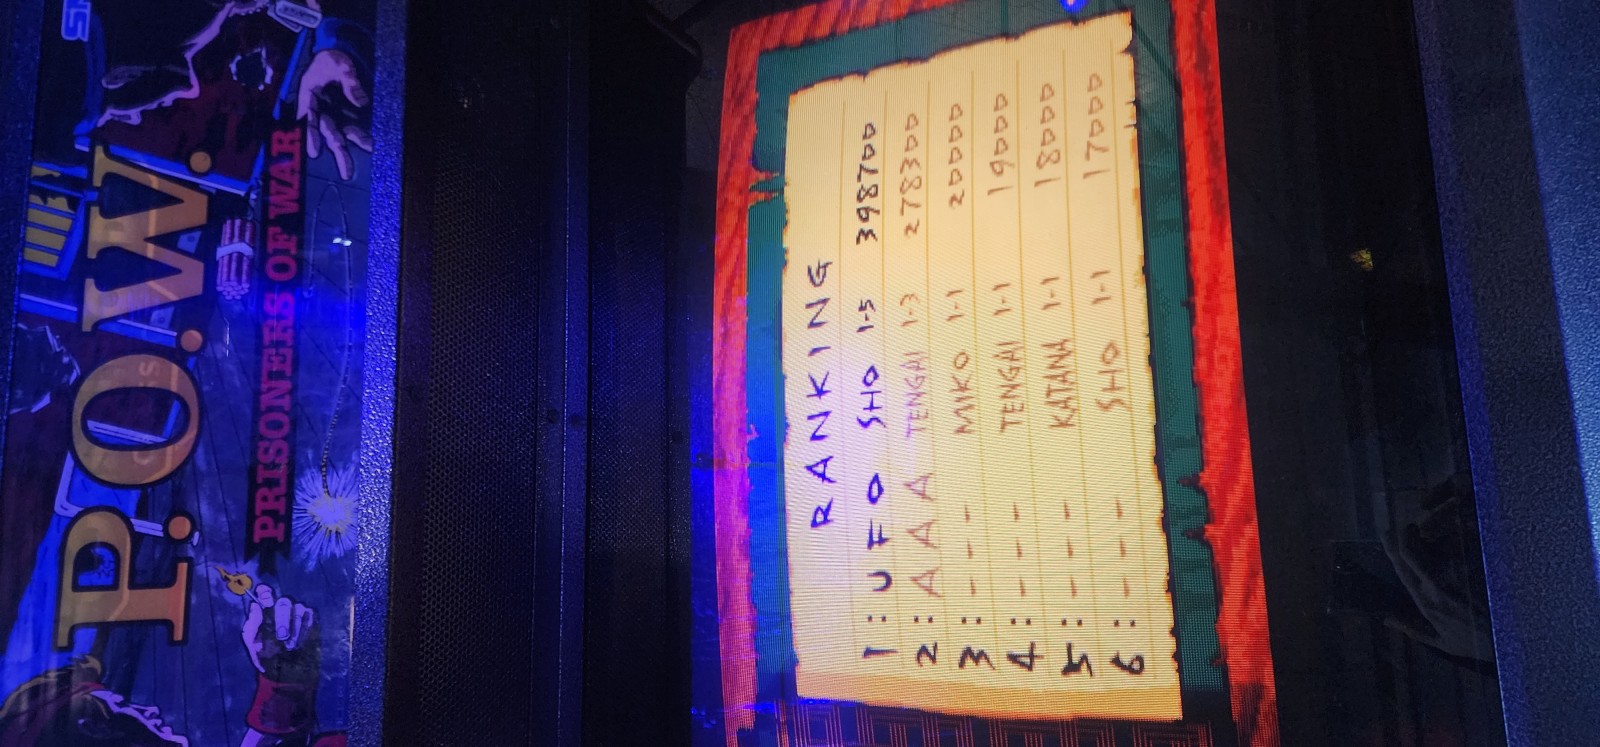 P.O.W.
PRISONERS OF WAR
RANKING
1: UFO SHO 1-5 398700
2: AAA TENGAI 1-3 278300
3: --- MIKO 1-1 200000
4: --- TENGAI 1-1 190000
5: --- KATANA 1-1 180000
6: --- SHO 1-1 170000